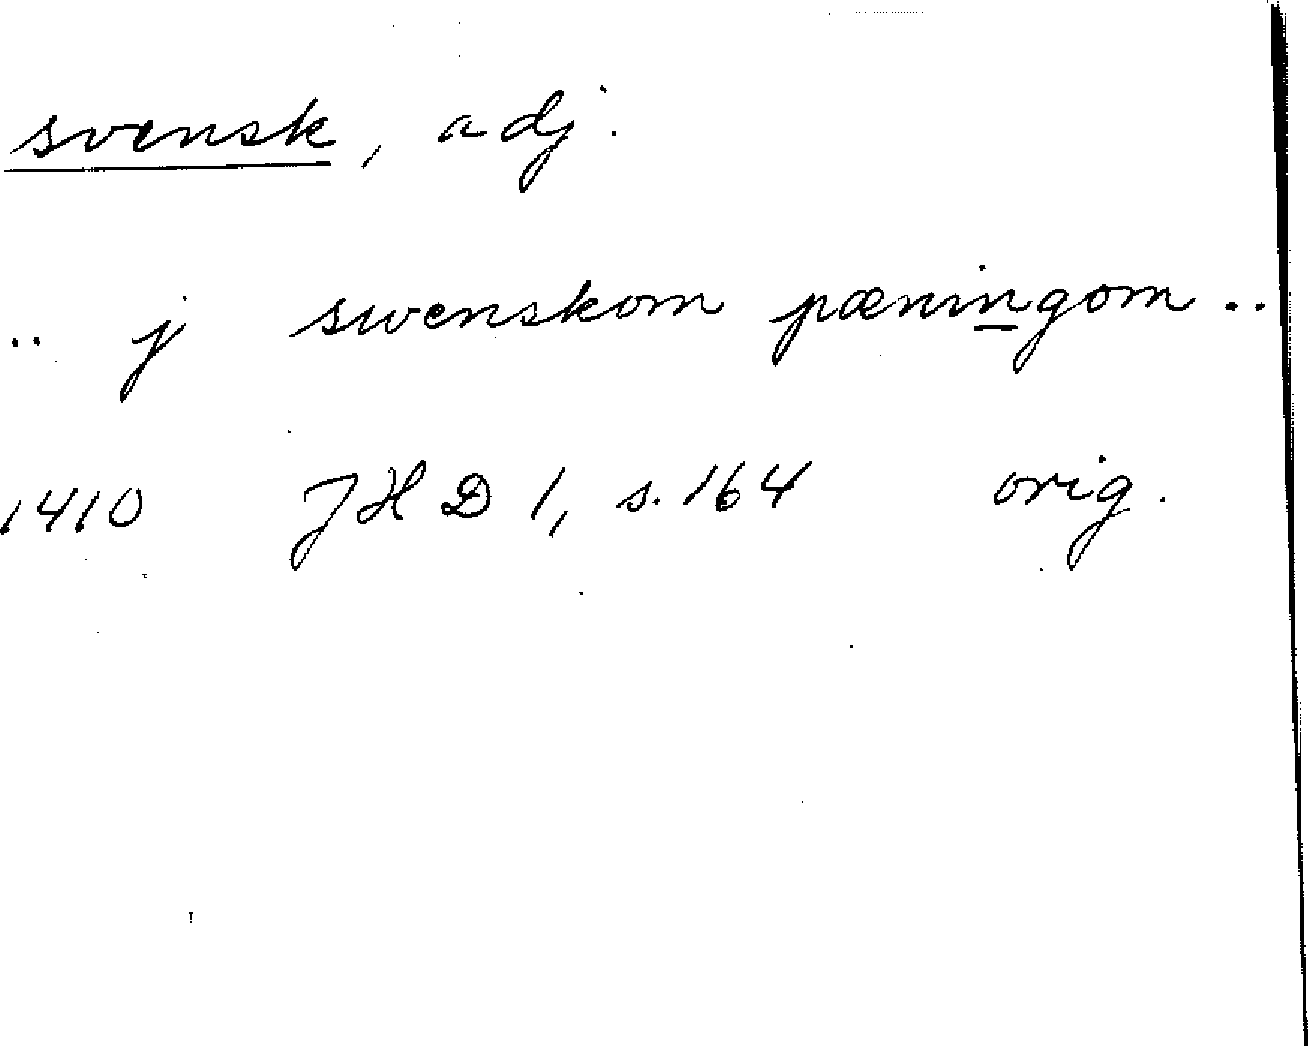 svensk, adj.
.. j swenskom pæningom ..
1410 JHD 1, s. 164 orig.